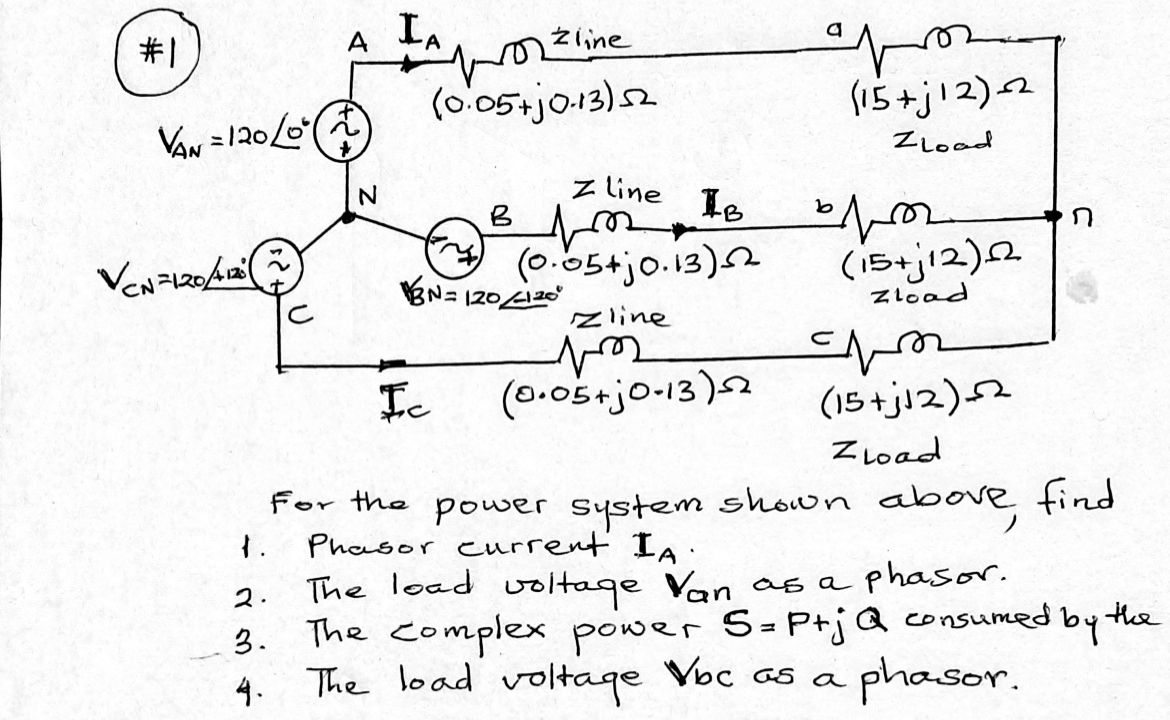 #1
A I_A z line
(0.05+j0.13)Ω
a
(15+j12)Ω
ZLoad
V_AN = 120∠0°
+
~
N
z line
I_B
B
b
n
(0.05+j0.13)Ω
(15+j12)Ω
zload
-
~
+
V_BN = 120∠-120°
V_CN = 120∠+120°
-
~
+
C
z line
c
I_C
(0.05+j0.13)Ω
(15+j12)Ω
ZLoad
For the power system shown above, find
1. Phasor current I_A.
2. The load voltage Van as a phasor.
3. The complex power S=P+jQ consumed by the
4. The load voltage Vbc as a phasor.